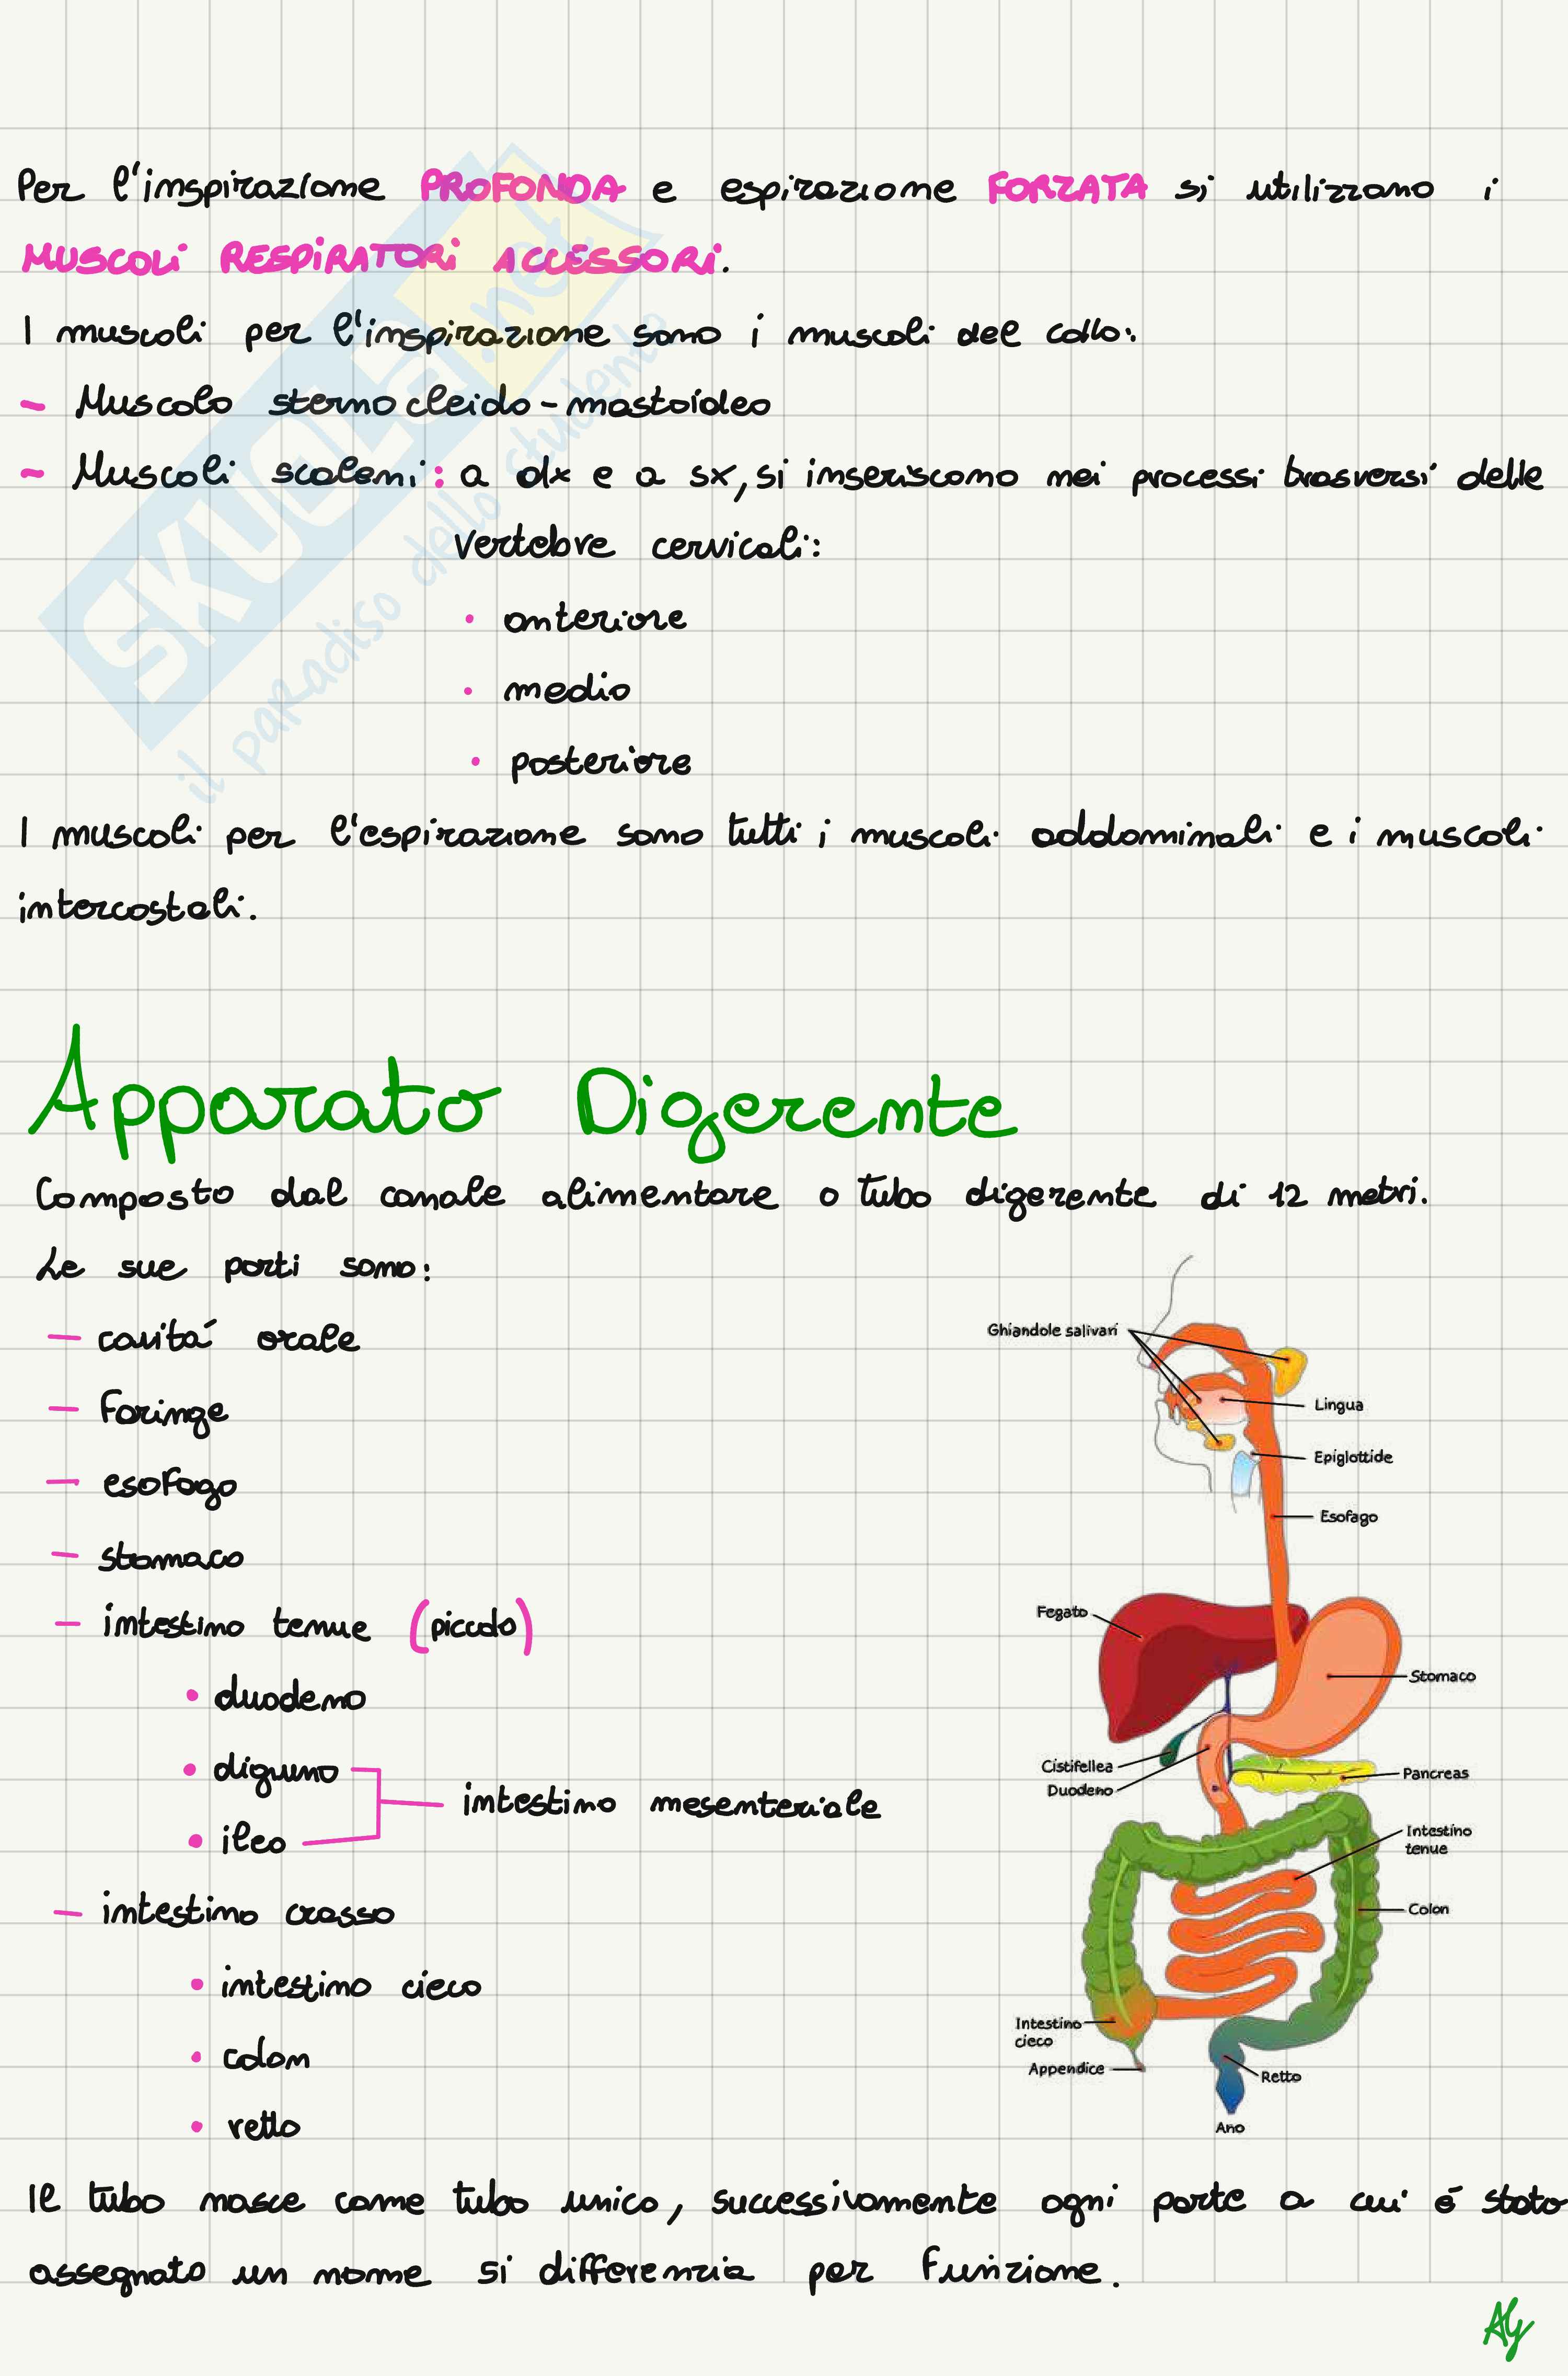 Per l'inspirazione PROFONDA e espirazione FORZATA si utilizzano i
MUSCOLI RESPIRATORI ACCESSORI.
I muscoli per l'inspirazione sono i muscoli del collo:
- Muscolo sternocleido-mastoideo
- Muscoli scaleni: a dx e a sx, si inseriscono nei processi trasversi delle
vertebre cervicali:
• anteriore
• medio
• posteriore
I muscoli per l'espirazione sono tutti i muscoli addominali e i muscoli
intercostali.
SKUOLA.net
il paradiso dello studente
Apparato Digerente
Composto dal canale alimentare o tubo digerente di 12 metri.
Le sue parti sono:
- cavitá orale
- faringe
- esofago
- stomaco
- intestino tenue (piccolo)
• duodeno
• digiuno
• ileo
intestino mesenteriale
- intestino crasso
• intestino cieco
• colon
• retto
Ghiandole salivari
Lingua
Epiglottide
Esofago
Fegato
Stomaco
Cistifellea
Duodeno
Pancreas
Intestino
tenue
Colon
Intestino
cieco
Appendice
Retto
Ano
Il tubo nasce come tubo unico, successivamente ogni parte a cui é stato
assegnato un nome si differenzia per funzione.
Aly